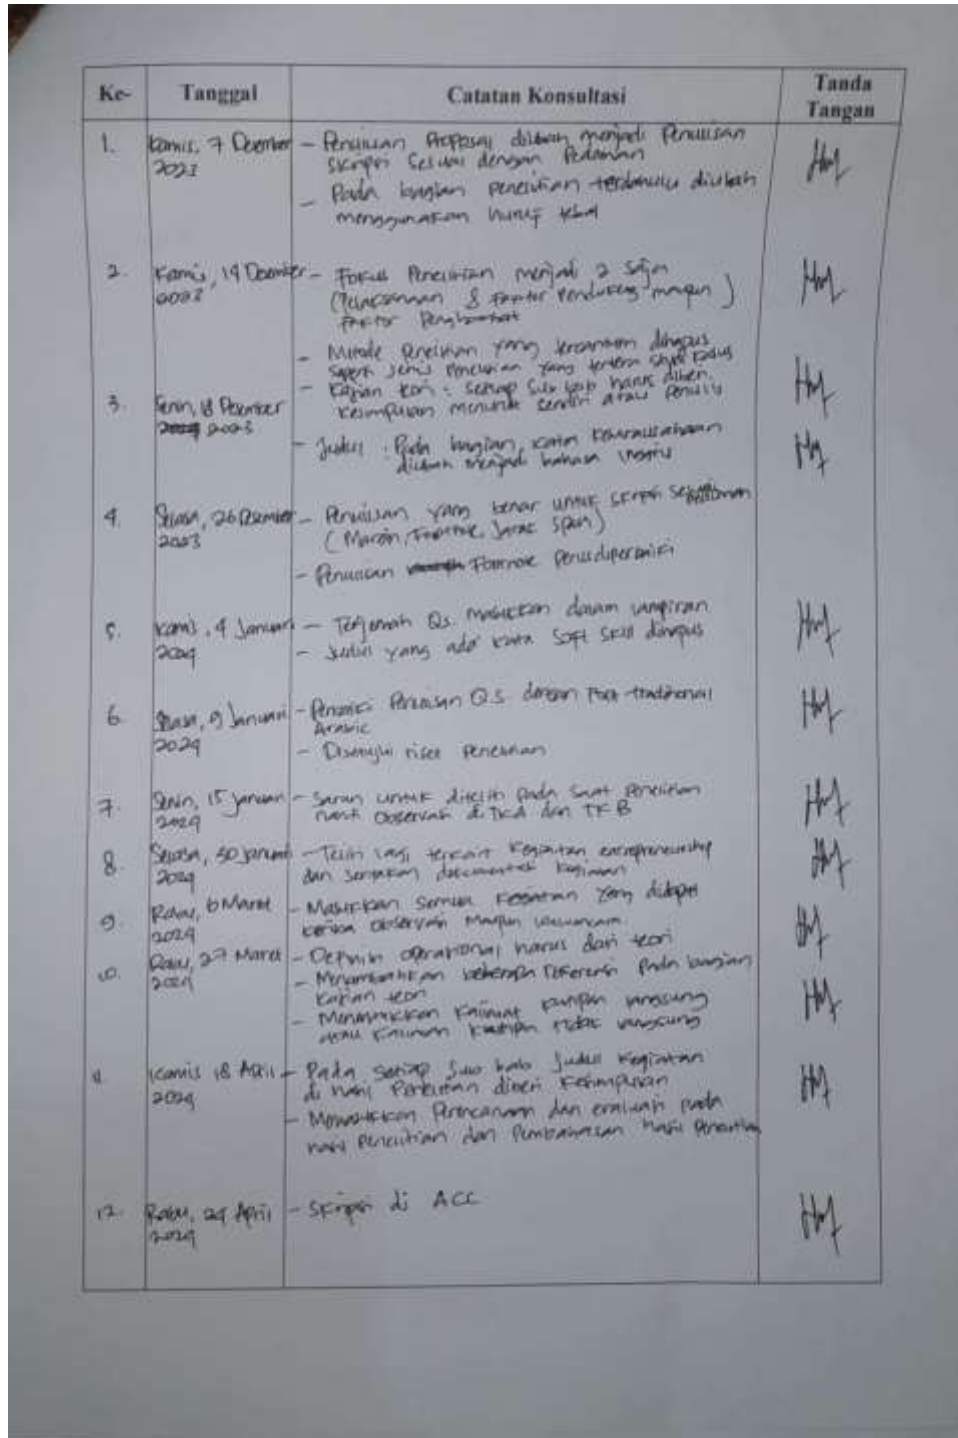 Ke- Tanggal Catatan Konsultasi Tanda Tangan
1. Kamis, 7 Desember 2023
- Penulisan Proposal diubah menjadi Penulisan
skripsi sesuai dengan Pedoman
- Pada bagian penelitian terdahulu diubah
menggunakan huruf tebal
2. Kamis, 14 Desember 2023
- Fokus Penelitian menjadi 2 saja
(Pelaksanaan & Faktor Pendukung maupun)
Faktor Penghambat
- Metode Penelitian yang tercantum dihapus
seperti jenis Penelitian yang tertera studi kasus
- Kajian teori : setiap sub bab harus diberi
kesimpulan menurut sendiri atau Penulis
3. Senin, 18 Desember 2023
- Judul : Pada bagian kata kewirausahaan
diubah menjadi bahasa Inggris
4. Selasa, 26 Desember 2023
- Penulisan yang benar untuk skripsi sesuai pedoman
(Margin, Footnote, Jarak Spasi)
- Penulisan Footnote Perlu diperbaiki
5. Kamis, 4 Januari 2024
- Terjemah Qs. masukkan dalam lampiran
- Judul yang ada kata Soft Skill dihapus
6. Selasa, 9 Januari 2024
- Perbaiki Penulisan Q.S. dengan Font traditional
Arabic
- Disetujui riset penelitian
7. Senin, 15 Januari 2024
- Saran untuk diteliti pada saat Penelitian
nanti observasi di TKA dan TKB
8. Selasa, 30 Januari 2024
- Teliti lagi terkait kegiatan entrepreneurship
dan sertakan documentasi kegiatan
9. Rabu, 6 Maret 2024
- Masukkan semua kegiatan yang didapat
ketika observasi maupun wawancara.
10. Rabu, 27 Maret 2024
- Definisi operational harus dari teori
- Menambahkan beberapa referensi pada bagian
kajian teori
- Memasukkan kalimat kutipan langsung
atau kalimat kutipan tidak langsung
11. Kamis 18 April 2024
- Pada setiap sub bab judul kegiatan
di hasil Penelitian diberi kesimpulan
- Memasukkan Perencanaan dan evaluasi pada
hasil penelitian dan Pembahasan hasil Penelitian
12. Rabu, 24 April 2024
- Skripsi di ACC